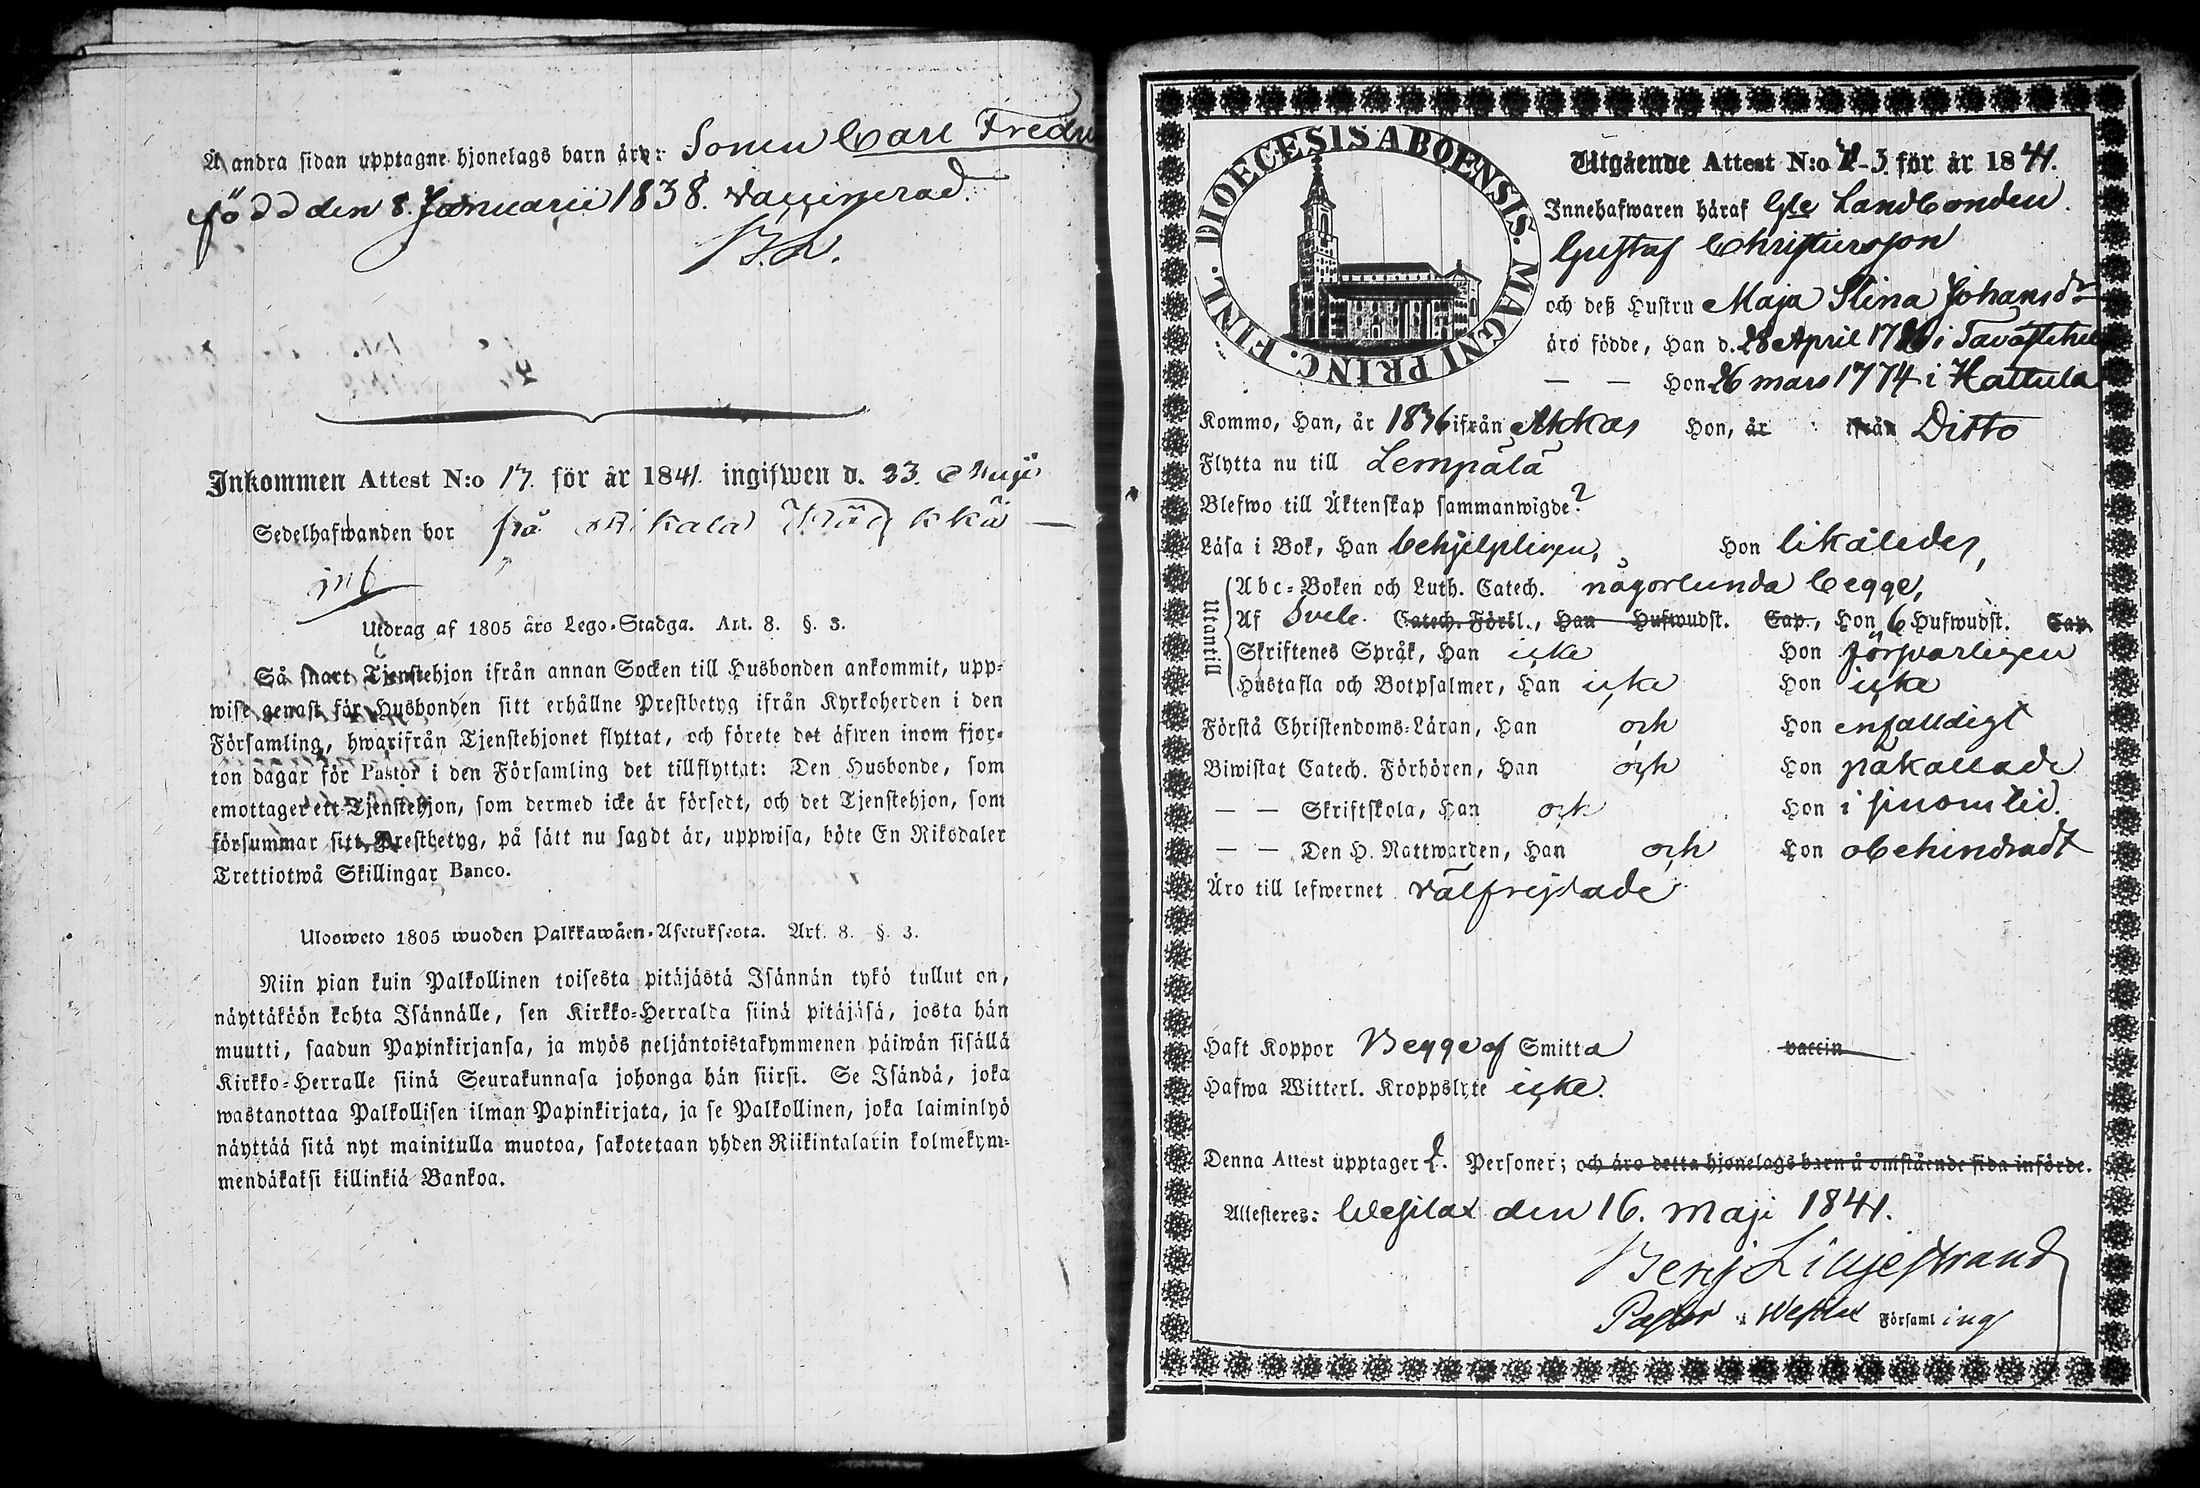 Å andra sidan upptagne hjonelags barn äro: Sonen Carl Fredr
född den 8. Januarii 1838. vaccinerad.
B.L.
Inkommen Attest N:o 17. för år 1841. ingifwen d. 23. Maji
Sedelhafwanden bor på
Utdrag af 1805 års Lego-Stadga. Art. 8. §. 3.
Så snart Tjenstehjon ifrån annan Socken till Husbonden ankommit, upp-
wise genast för Husbonden sitt erhållne Prestbetyg ifrån Kyrkoherden i den
Församling, hwarifrån Tjenstehjonet flyttat, och förete det äfwen inom fjor-
ton dagar för Pastor i den Församling det tillflyttat: Den Husbonde, som
emottager ett Tjenstehjon, som dermed icke är försedt, och det Tjenstehjon, som
försummar sitt Prestbetyg, på sätt nu sagdt är, uppwisa, böte En Riksdaler
Trettiotwå Skillingar Banco.
Ulosweto 1805 wuoden Palkkawäen-Asetuksesta. Art. 8. §. 3.
Niin pian kuin Palkollinen toisesta pitäjästä Isännän tykö tullut on,
näyttäköön kohta Isännälle, sen Kirkko-Herralda siinä pitäjäsä, josta hän
muutti, saadun Papinkirjansa, ja myös neljäntoistakymmenen päiwän sisällä
Kirkko-Herralle siinä Seurakunnasa johonga hän siirsi. Se Isändä, joka
wastanottaa Palkollisen ilman Papinkirjata, ja se Palkollinen, joka laiminlyö
näyttää sitä nyt mainitulla muotoa, sakotetaan yhden Riikintalarin kolmekym-
mendäkaksi killinkiä Bankoa.
DIOECESIS ABOENSIS. MAGNI PRINC. FINL.
Utgående Attest N:o 3 för år 1841.
Innehafwaren häraf Landbonden
Gustaf Christiersson
och deß Hustru Maja Stina Johansdr
äro födde, Han d. 28 April i Tavastehus
— — Hon 26 mars 1774 i Hattula
Kommo, Han, år 1836 ifrån Akkas Hon, år ifrån Ditto
Flytta nu till Lempälä
Blefwo till Äktenskap sammanwigde?
Läsa i Bok, Han behjelpligen, Hon likäledes,
Utantill
Abc-Boken och Luth. Catech. någorlunda begge,
Af Sveb. Catech. Förkl., Han Hufwudst. Cap., Hon 6 Hufwudst. Cap.
Skriftenes Språk, Han icke Hon försvarligen
Hustafla och Botpsalmer, Han icke Hon icke
Förstå Christendoms-Läran, Han och Hon enfalldigt
Biwistat Catech. Förhören, Han och Hon påkallade
— — Skriftskola, Han och Hon i sinom tid.
— — Den H. Nattwarden, Han och Hon obehindradt
Äro till lefwernet välfrejdade
Haft Koppor Begge af Smitta vaccin
Hafwa Witterl. Kroppslyte icke.
Denna Attest upptager 2. Personer; och äro detta hjonelags barn å omstående sida införde.
Attesteres: Wesilax den 16. Maji 1841.
Benj Liljestrand
Pastor i Wesilax Församling